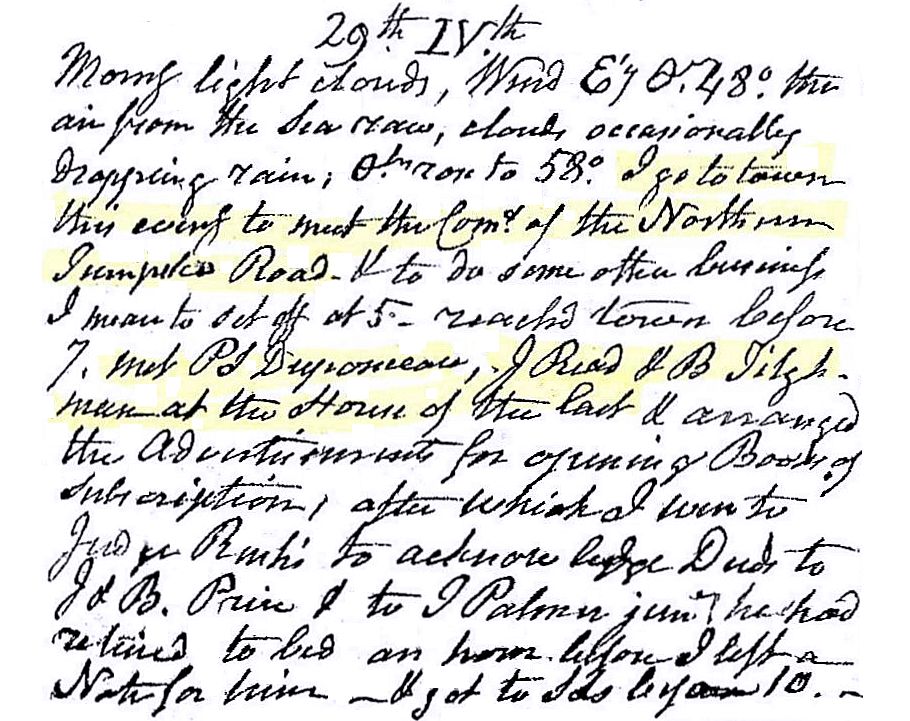 29th IVth
Morng light clouds, Wind E'y Ꝋr. 48° the
air from the Sea raw, clouds occasionally
dropping rain; rose to 58° I go to town
this eveng to meet the Comt. of the Northern
Turnpike Road - & to do some other business
I mean to set off at 5 - reachd town before
7. met PS Duponceau, J Read & B Tilgh-
man at the House of the last & arranged
the Advertisements for opening Books of
Subscription; after which I went to
Judge Rush's to acknowledge Deeds to
J & B. Price & to J Palmer junr, he had
retired to bed an hour before I left a
Note for him - & got to before 10. -